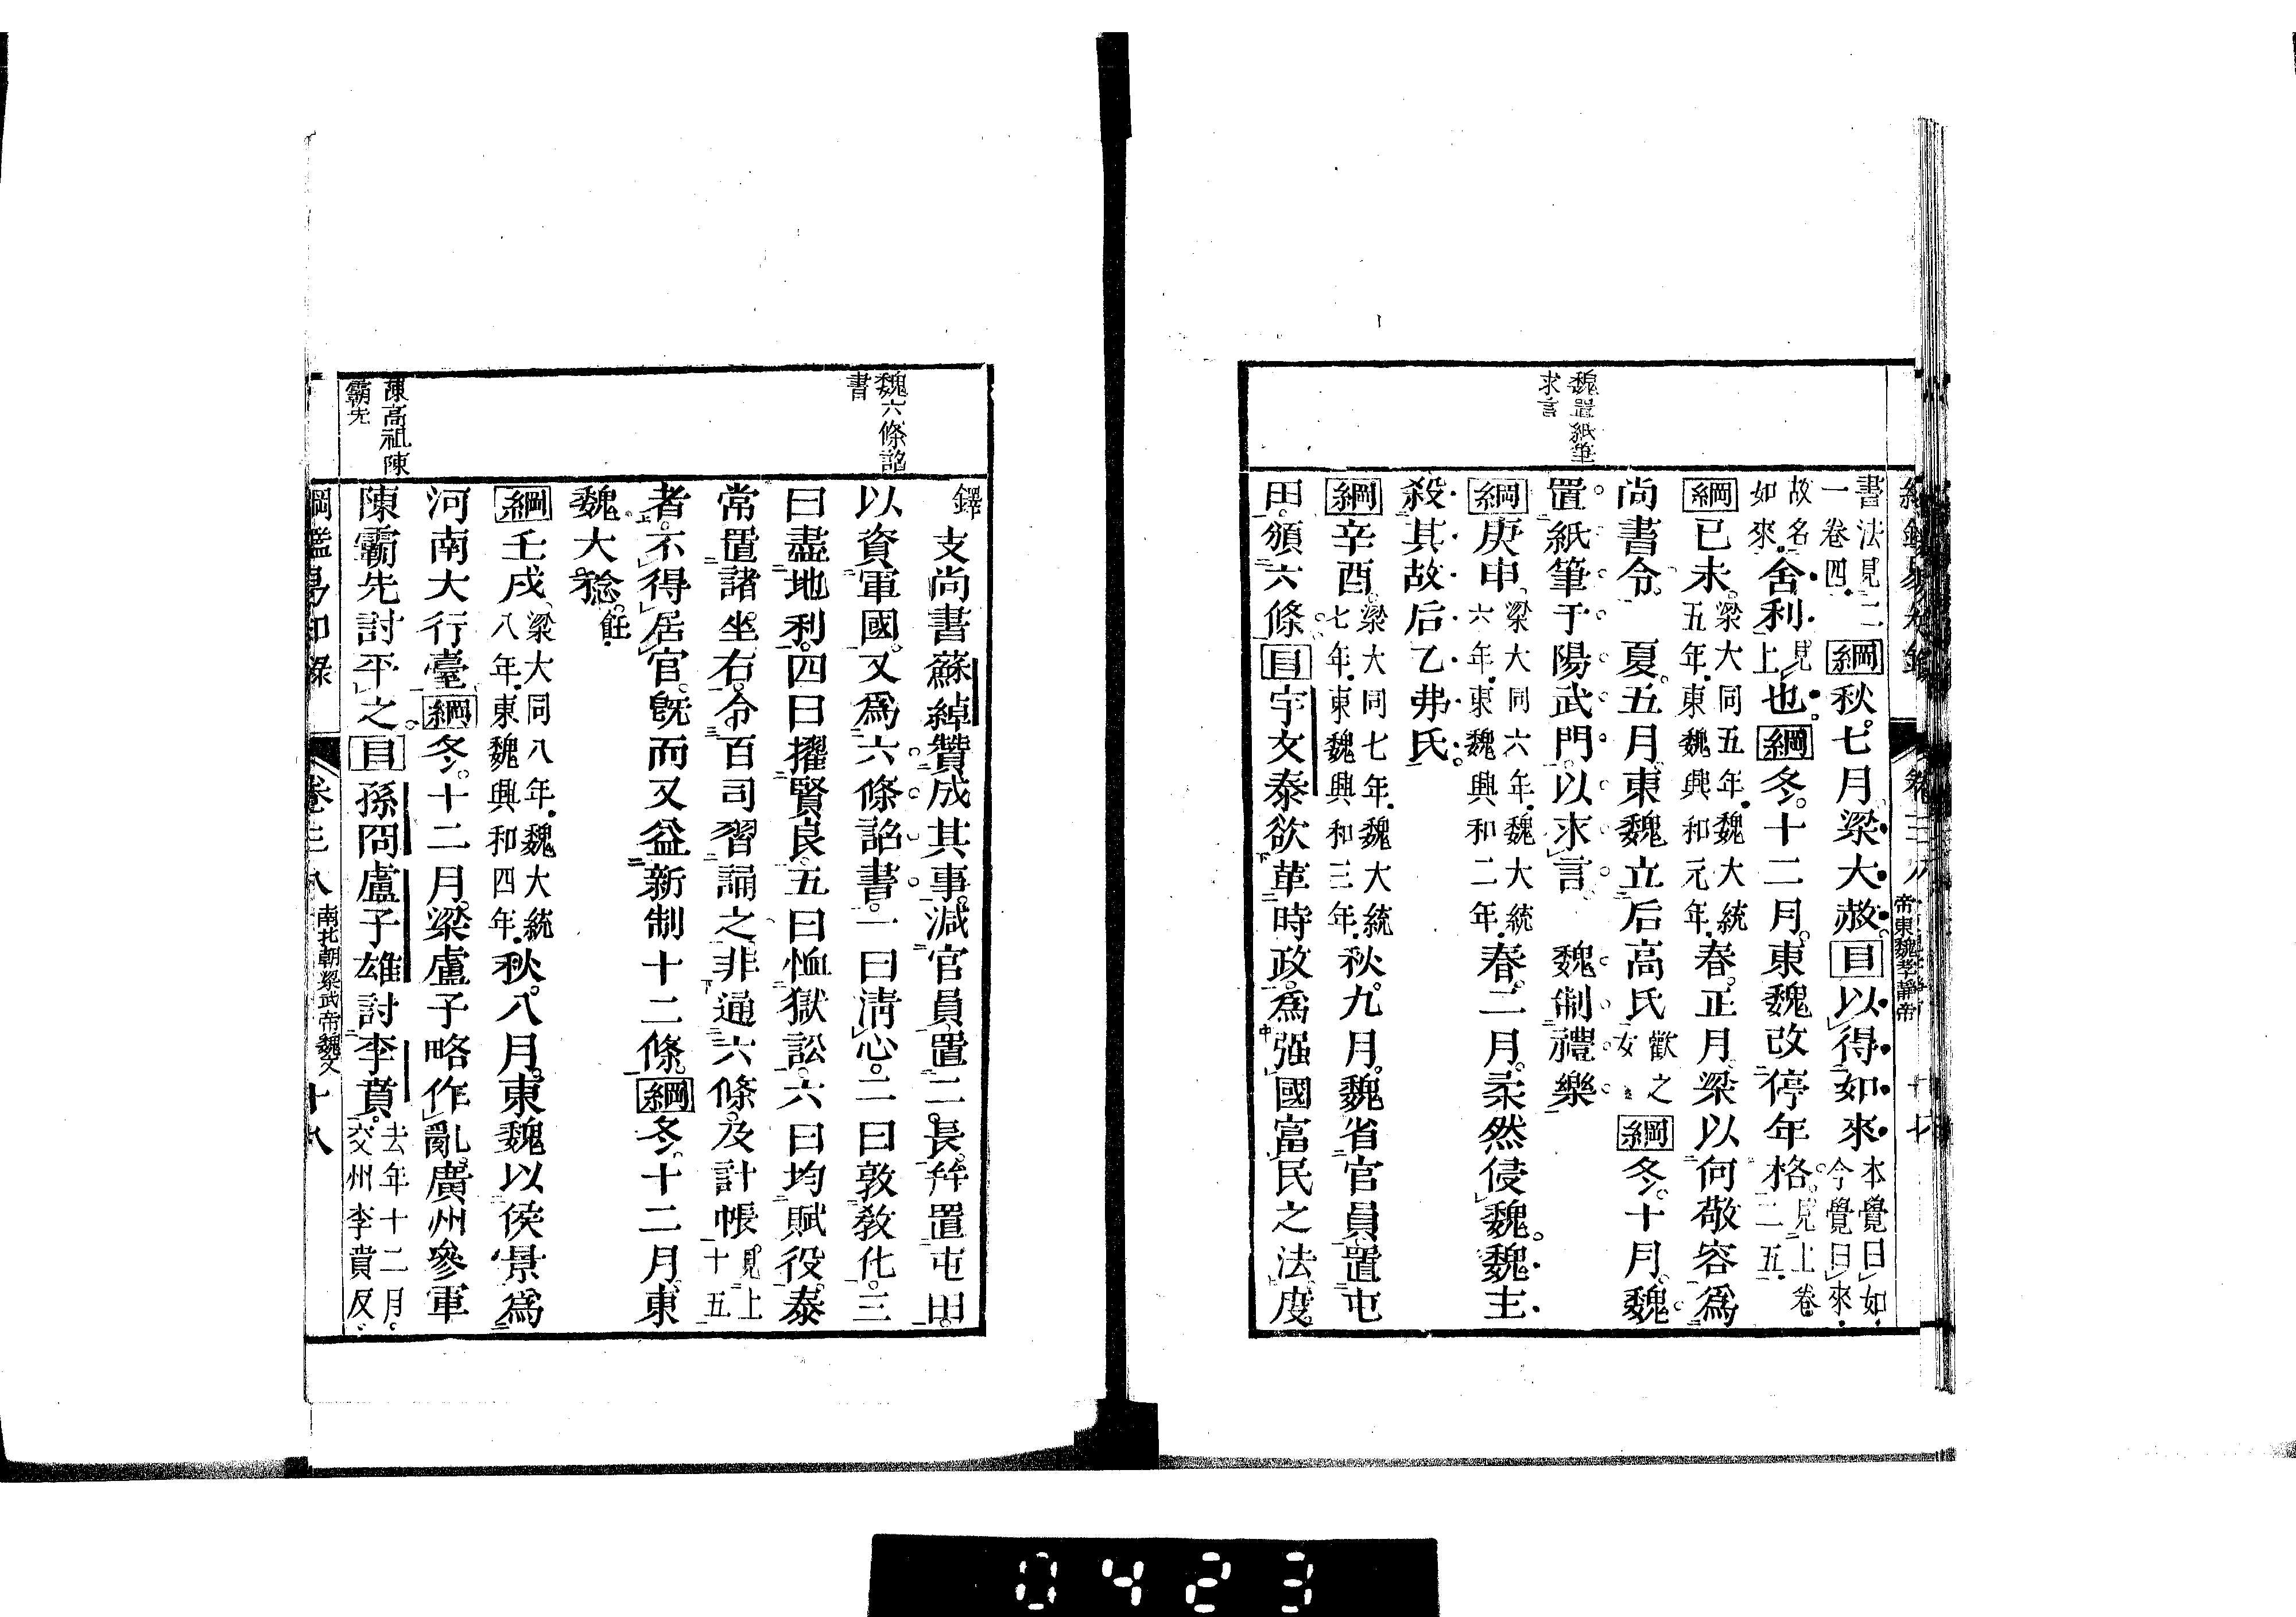 魏置紙筆
求言
書法見二
一卷四綱秋七月梁大赦目以得如來本覺曰如
今覺曰來
故名
如來舍利見上也綱冬十二月東魏改停年格見上卷
二五
綱己未梁大同五年魏大統
五年東魏興和元年春正月梁以何敬容爲
尚書令 夏五月東魏立后高氏歡之
女綱冬十月魏
置紙筆于陽武門以求言 魏制禮樂
綱庚申梁大同六年魏大統
六年東魏興和二年春二月柔然侵魏魏主
殺其故后乙弗氏
綱辛酉梁大同七年魏大統
七年東魏興和三年秋九月魏省官員置屯
田頒六條目宇文泰欲革時政爲强國富民之法度
帝東魏孝靜帝 十七
魏六條詔
書
陳高祖陳
霸先
鐸支尚書蘇綽贊成其事減官員置二長并置屯田
以資軍國又爲六條詔書一曰淸心二曰敦敎化三
曰盡地利四曰擢賢良五曰恤獄訟六曰均賦役泰
常置諸坐右令百司習誦之非通六條及計帳見上
十五
者不得居官旣而又益新制十二條綱冬十二月東
魏大稔飪
綱壬戌梁大同八年魏大統
八年東魏興和四年秋八月東魏以侯景爲
河南大行臺綱冬十二月梁盧子略作亂廣州參軍
陳霸先討平之目孫冏盧子雄討李賁去年十二月
交州李賁反
綱鑑易知錄 卷三八 南北朝梁武帝魏文 十八
0423